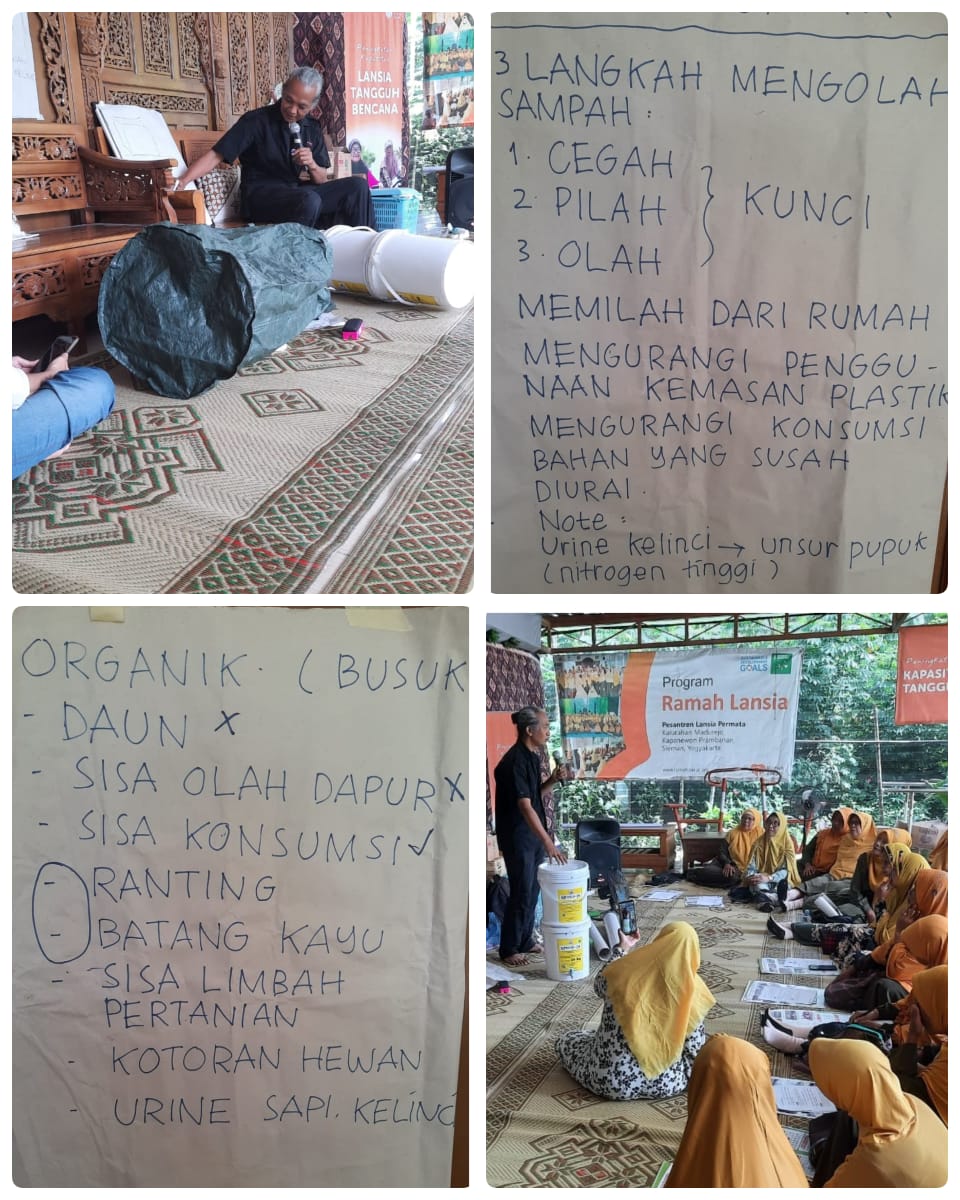 Peningkatan
Kapasitas
LANSIA
TANGGUH
BENCANA
3 LANGKAH MENGOLAH
SAMPAH :
1. CEGAH
2. PILAH
3. OLAH
KUNCI
MEMILAH DARI RUMAH
MENGURANGI PENGGU-
NAAN KEMASAN PLASTIK
MENGURANGI KONSUMSI
BAHAN YANG SUSAH
DIURAI.
Note :
Urine kelinci → unsur pupuk
(nitrogen tinggi)
ORGANIK. (BUSUK
- DAUN x
- SISA OLAH DAPUR x
- SISA KONSUMSI ✓
- RANTING
- BATANG KAYU
- SISA LIMBAH
PERTANIAN
- KOTORAN HEWAN
- URINE SAPI. KELINC
GOALS
Program
Ramah Lansia
Pesantren Lansia Permata
Kalurahan Madurejo,
Kapanewon Prambanan,
Sleman, Yogyakarta
Peningkat
KAPASI
TANGGU